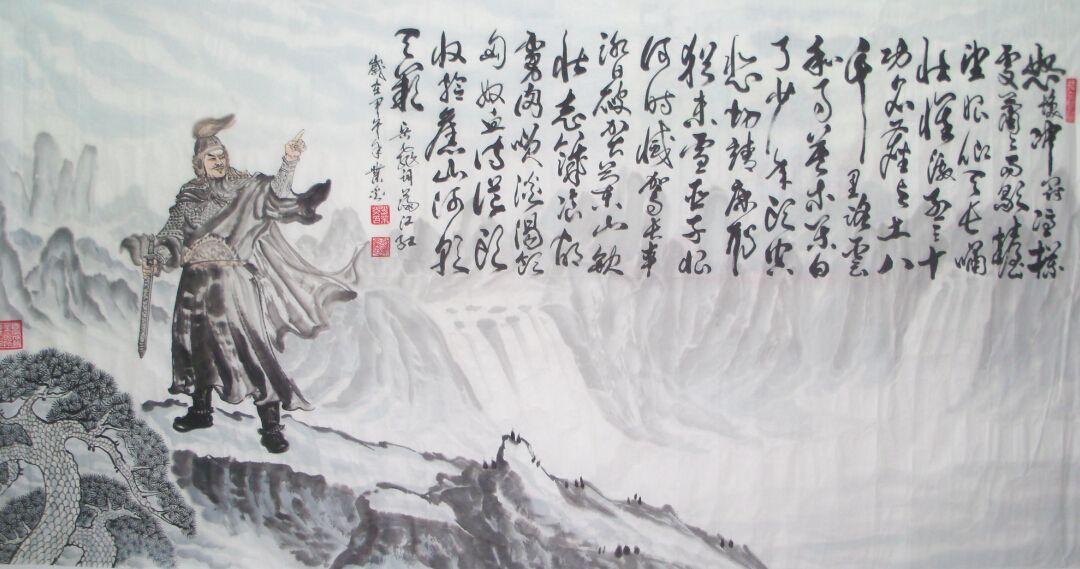 怒髮冲冠凭栏
處蕭々雨歇擡
望眼仰天長嘯
壯懷激烈三十
功名塵與土八
千里路雲
和月莫等閒白
了少年頭空
悲切靖康耻
猶未雪臣子恨
何時滅駕長車
踏破賀蘭山缺
壯志飢餐胡
虜肉笑談渴飲
匈奴血待從頭
收拾舊山河朝
天闕 岳飛詞滿江紅
歲在甲午年